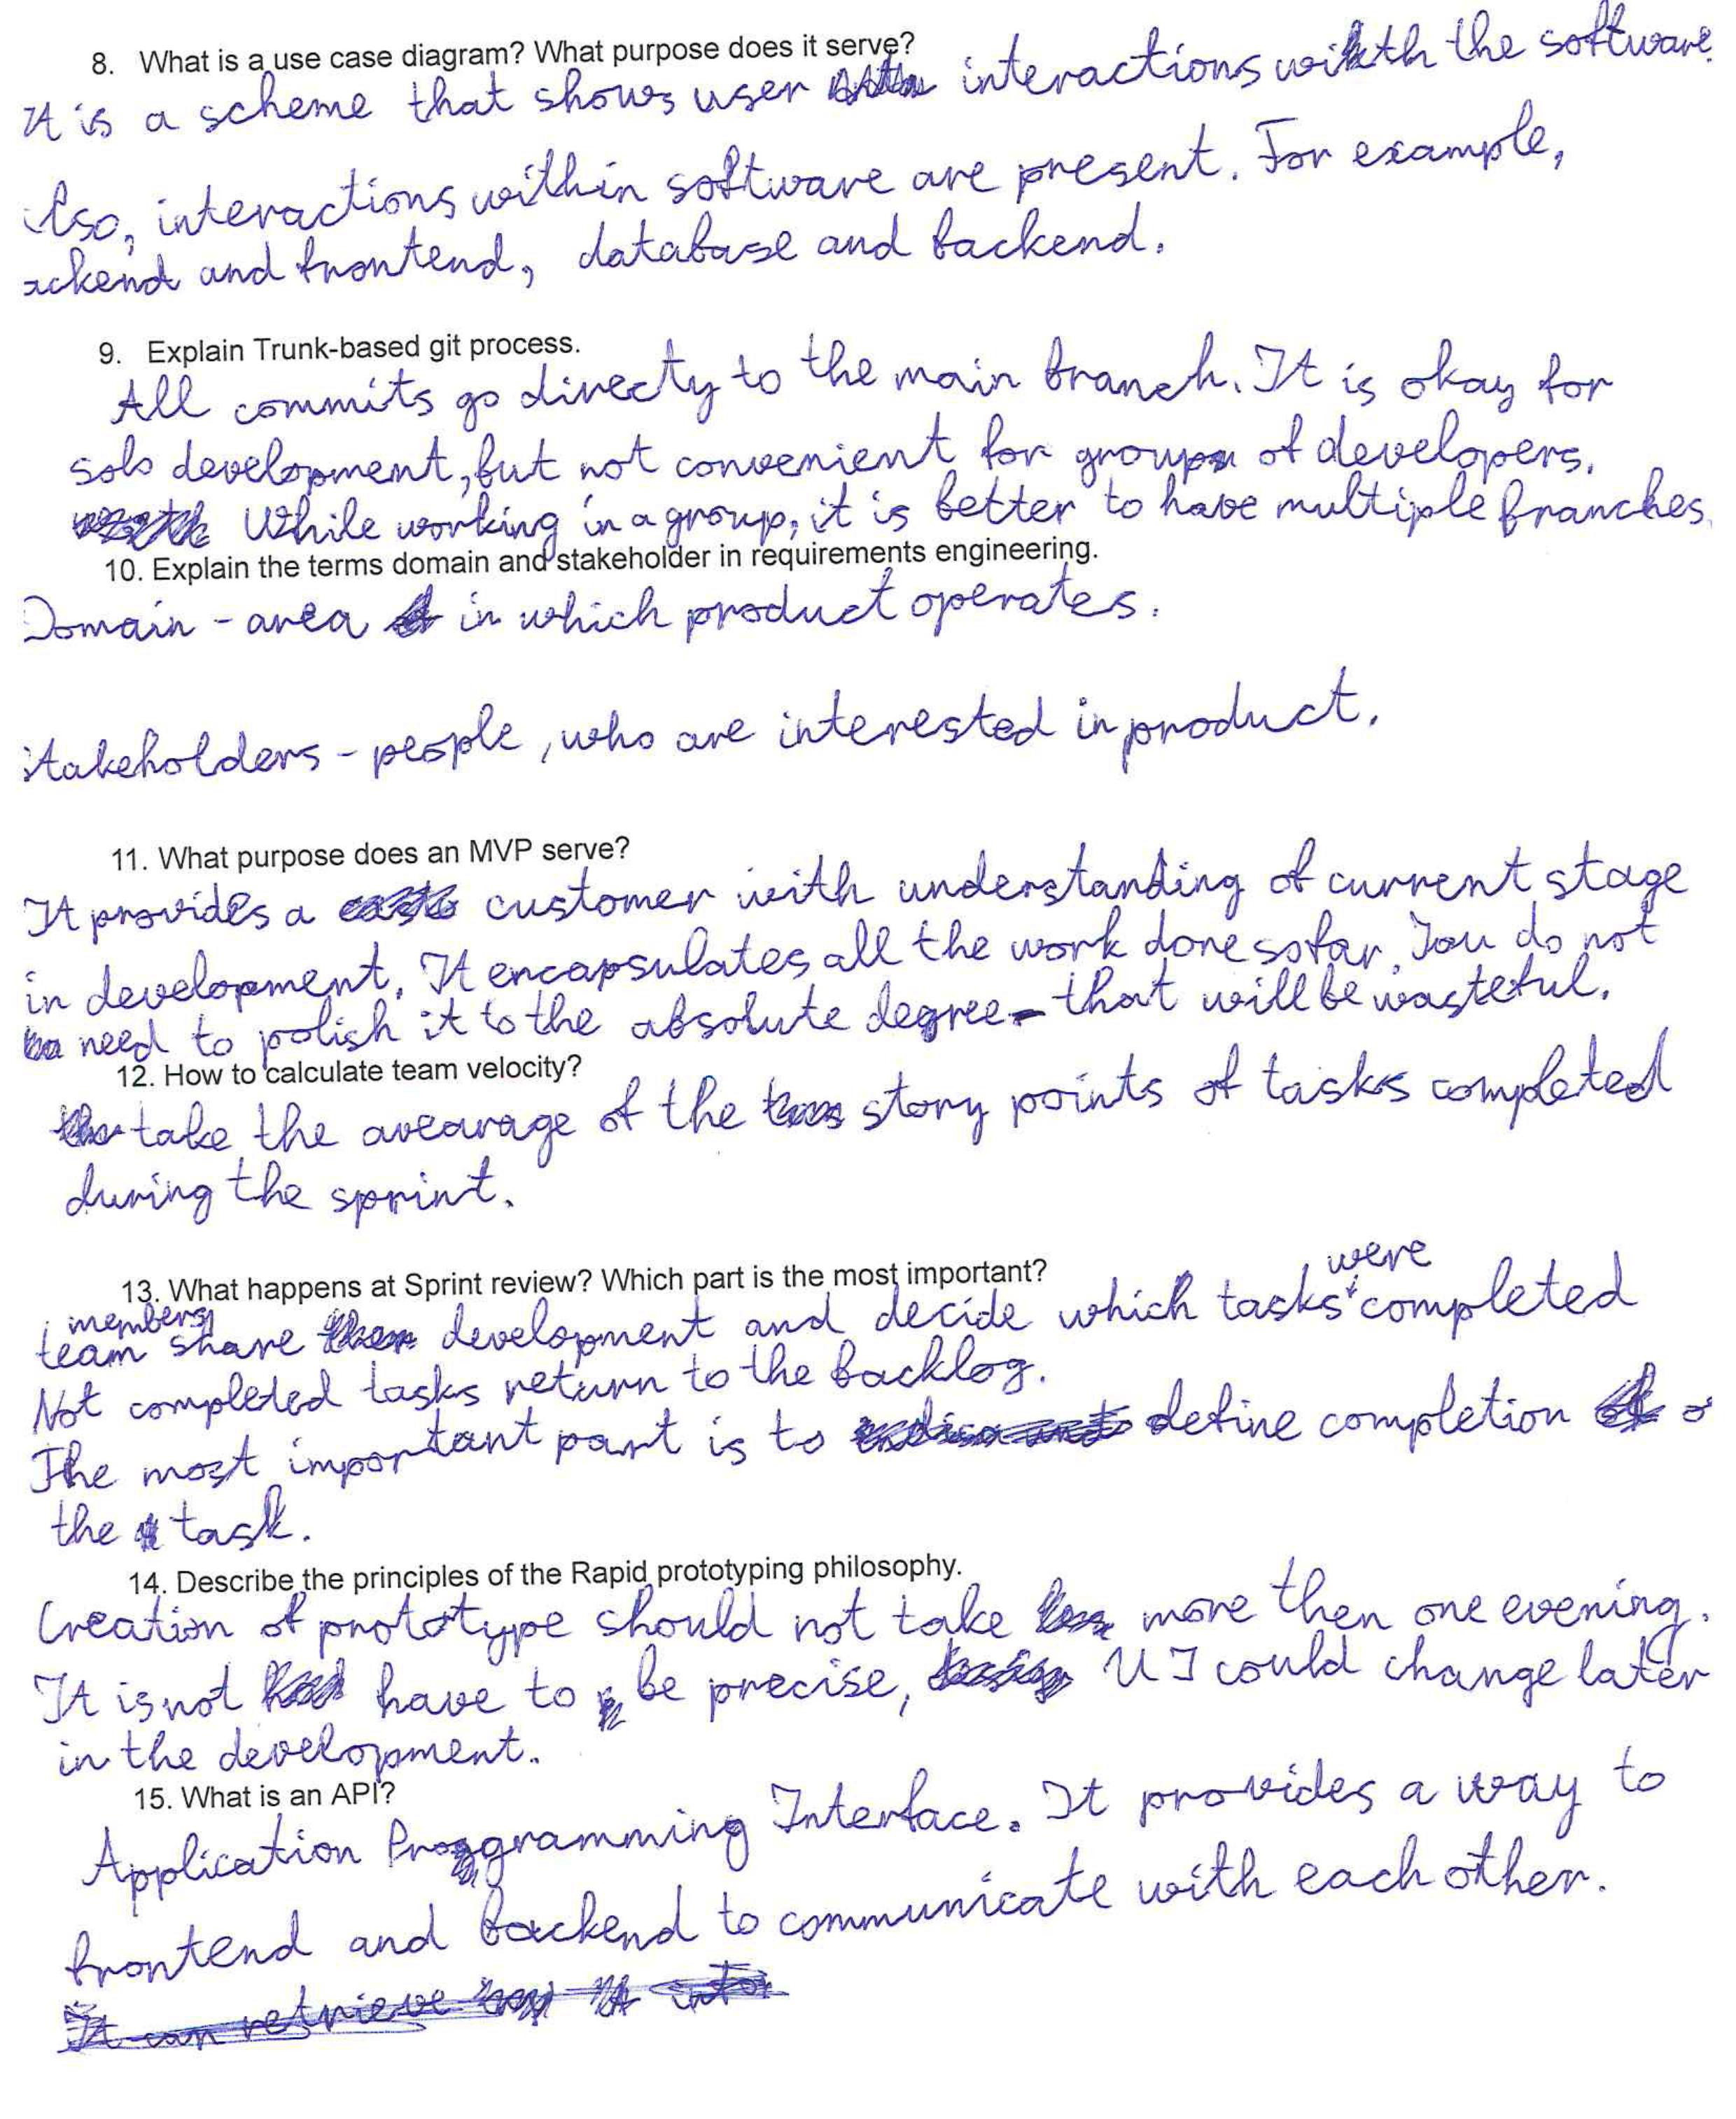 8. What is a use case diagram? What purpose does it serve?
It is a scheme that shows user interactions with the software.
Also, interactions within software are present. For example,
ackend and frontend, database and backend.
9. Explain Trunk-based git process.
All commits go directy to the main branch. It is okay for
solo development, but not convenient for group of developers.
While working in a group, it is better to have multiple branches.
10. Explain the terms domain and stakeholder in requirements engineering.
Domain - area in which product operates.
Stakeholders - people, who are interested in product.
11. What purpose does an MVP serve?
It provides a customer with understanding of current stage
in development. It encapsulates all the work done so far. You do not
need to polish it to the absolute degree - that will be wasteful.
12. How to calculate team velocity?
take the avearage of the story points of tasks completed
during the sprint.
13. What happens at Sprint review? Which part is the most important?
team members share development and decide which tasks were completed
Not completed tasks return to the backlog.
The most important part is to define completion o
the task.
14. Describe the principles of the Rapid prototyping philosophy.
Creation of prototype should not take more then one evening.
It is not have to be precise, UI could change later
in the development.
15. What is an API?
Application Programming Interface. It provides a way to
frontend and backend to communicate with each other.
It can retrieve